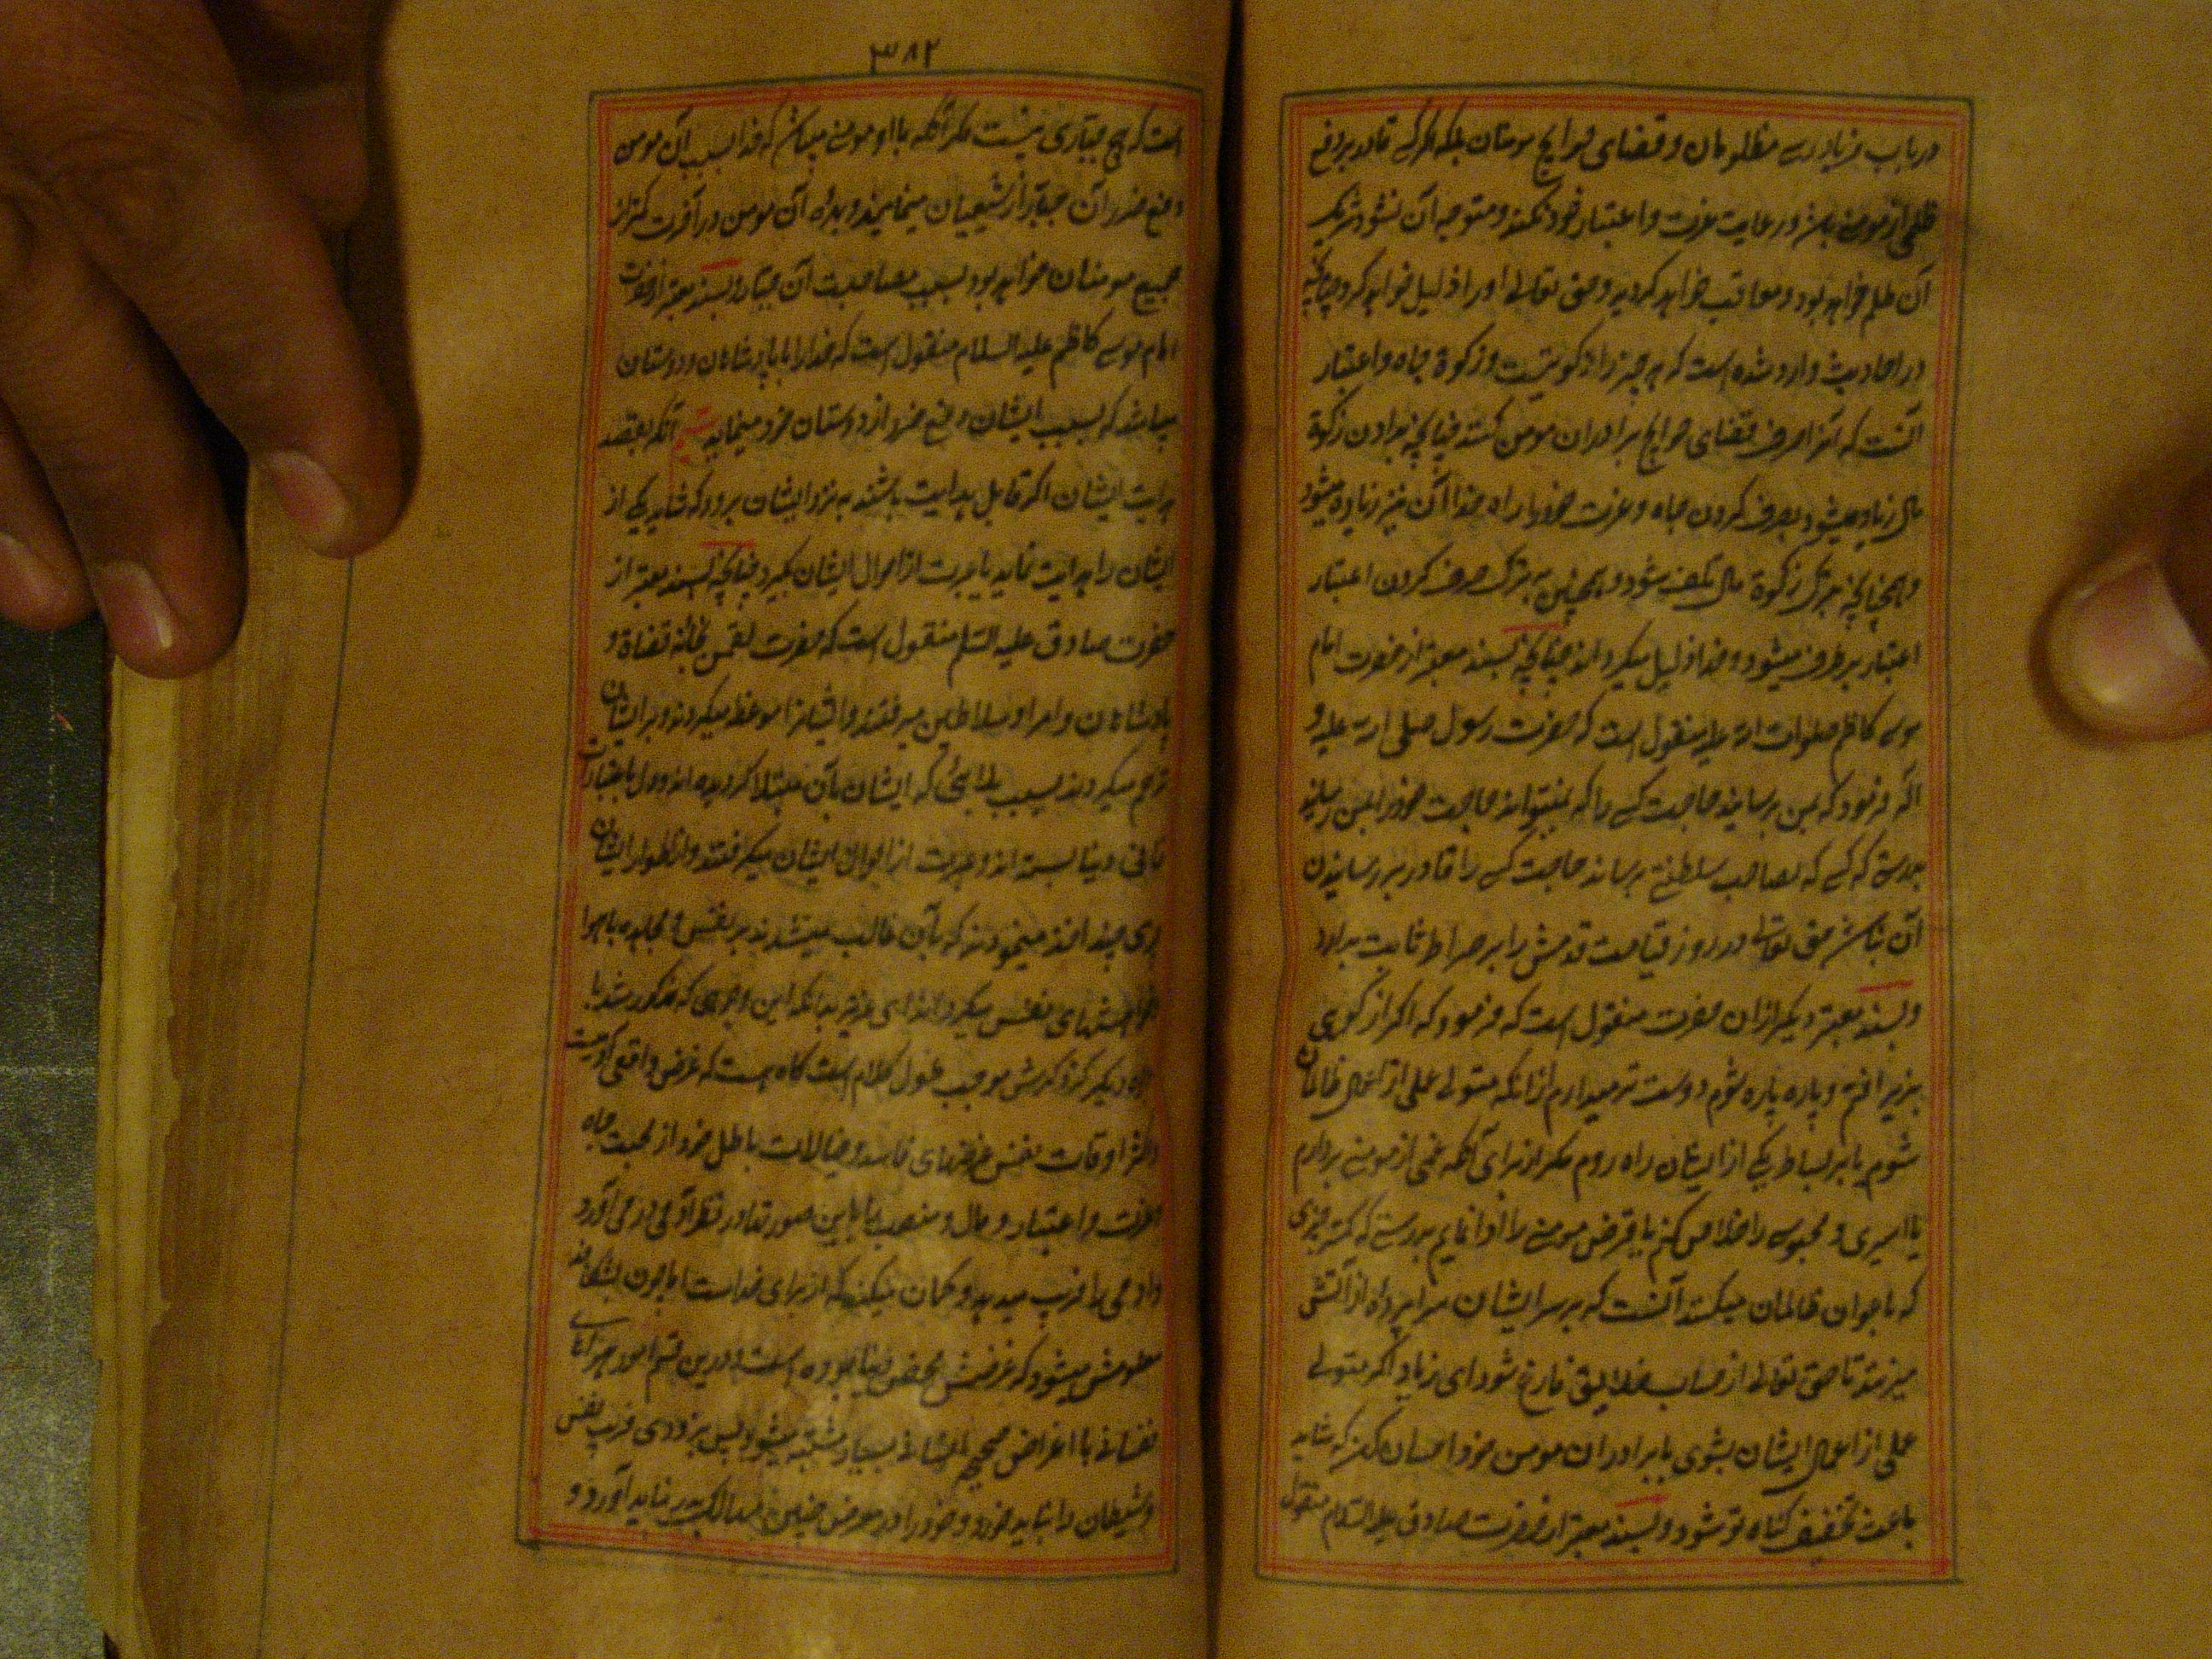 در باب فریاد رسی مظلومان و قضای حوایج مومنان بلکه هر که قادر بر دفع
ظلمی از مومنی باشد و رعایت عزت و اعتبار خود نکند و متوجه آن نشود شریک
آن ظلم خواهد بود و معاقب خواهد کردید و حق تعالی او را ذلیل خواهد کرد چنانچه
در احادیث وارد شده است که هر چیز را زکوتیست و زکوة جاه و اعتبار
آنست که آنرا صرف قضای حوایج برادران مومن کنند چنانچه بدادن زکوة
مال زیاد میشود بصرف کردن جاه و عزت خود در راه خدا آن نیز زیاده میشود
و همچنانچه بترک زکوة مال تلف میشود و همچنین به ترک صرف کردن اعتبار
اعتبار برطرف میشود و خدا ذلیل میکرداند چنانچه بسند معتبر از حضرت امام
موسی کاظم صلوات الله علیه منقول است که حضرت رسول صلی الله علیه و
آله فرمود که بمن برسانید حاجت کسی را که نمیتواند حاجت خود را بمن رسانید
بدرستی که کسی که بصاحب سلطنتی برساند حاجت کسی را که قادر بر رسانیدن
آن نباشد حق تعالی در روز قیامت قدمش را بر صراط ثابت بدارد
و بسند معتبر دیکر از ان حضرت منقول است که فرمود که اکر از کوهی
بزیر افتم و پاره پاره شوم دوست تر میدارم از انکه متولی عملی از اعمال ظالمان
شوم یا بر بساط یکی از ایشان راه روم مکر از برای آنکه غمی از مومنی بردارم
یا اسیری و محبوسی را خلاص کنم یا قرض مومنی را ادا نمایم بدرستی که کمتر چیزی
که با اعوان ظالمان میکنند آنست که بر سر ایشان سراپرده از آتش
میزنند تا حق تعالی از حساب خلایق فارغ شود ای زیاد اکر متولی
عملی از اعمال ایشان بشوی با برادران مومن خود احسان کن که شاید
باعث تخفیف کناه تو شود و بسند معتبر از حضرت صادق علیه السلام منقول
۳۸۲
است که هیچ جباری نیست مکر آنکه با او مومنی میباشد که خدا بسبب آن مومن
دفع ضرر آن جبار از شیعیان مینماید و بهره آن مومن در آخرت کمتر از
جمیع مومنان خواهد بود بسبب مصاحبت آن جبار و بسند معتبر از حضرت
امام موسی کاظم علیه السلام منقول است که خدا را با پادشاهان دوستان
میباشد که بسبب ایشان دفع ضرر از دوستان خود مینماید آنکه بقصد
هدایت ایشان اکر قابل هدایت باشند به نزد ایشان برود که شاید یکی از
ایشان را هدایت نماید یا عبرت از احوال ایشان بکیرد چنانچه بسند معتبر از
حضرت صادق علیه السلام منقول است که حضرت لقمن بخانه قضاة و
پادشاهان و امرا و سلاطین میرفتند و ایشانرا موعظه میکردند و بر ایشان
ترحم میکردند بسبب بلاهائی که ایشان بآن مبتلا کردیده اند و دل باعتبارات
فانی دنیا بسته اند و عبرت از احوال ایشان میکرفتند و از اطوار ایشان
چیزی چند اخذ مینمودند که بآن غالب میشدند بر نفس و مجاهده با هوا
و خواهشهای نفس میکردند ای عزیز بدانکه این وجوهی که مذکور شد با
راه دیکر که ذکرش موجب طول کلام است کاه هست که غرض واقعی آدمیست
و اکثر اوقات نفس غرضهای فاسد و خیالات باطل خود از محبت جاه
و عزت و اعتبار و مال و منصب را باین صورتها در نظر آدمی در می آورد
و آدمی را فریب میدهد و کمان میکند که از برای خداست اما چون بشکافد
معلومش میشود که غرضش محض دنیا بوده است و درین قسم امور
نفسانی با اغراض صحیحه انسانی بسیار مشتبه میشود پس بزودی فریب نفس
و شیطان را نباید خورد و خود را در معرض چنین مهالک در نباید آورد و